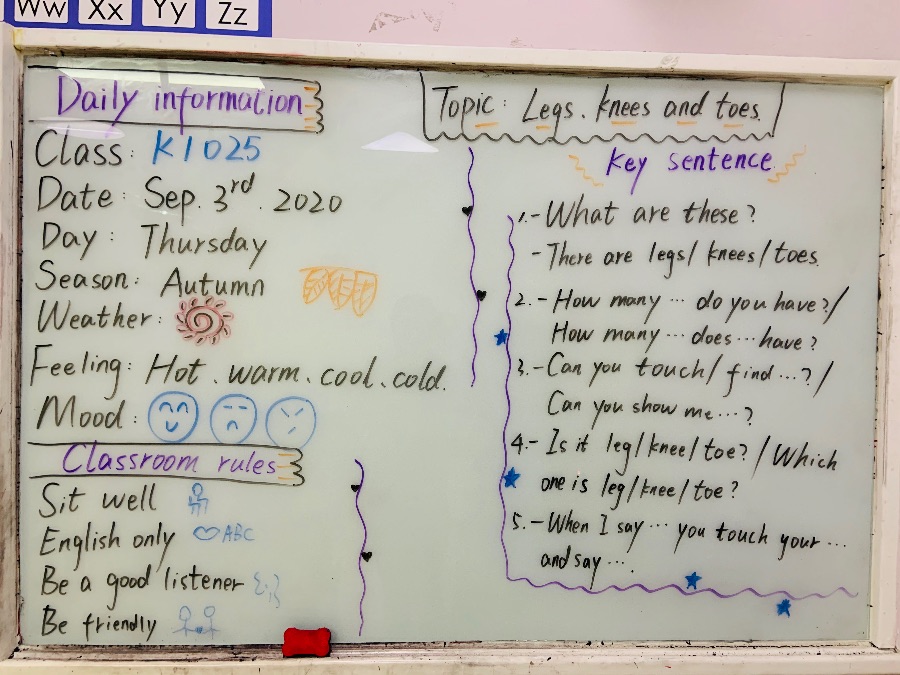 Ww Xx Yy Zz
Daily information
Class: K1025
Date: Sep. 3rd. 2020
Day: Thursday
Season: Autumn
Weather:
Feeling: Hot. warm. cool. cold.
Mood:
Classroom rules
Sit well
English only ABC
Be a good listener
Be friendly
Topic: Legs. knees and toes.
key sentence
1.- What are these?
- There are legs/ knees/ toes.
2.- How many ... do you have?/
How many ... does ... have?
3.- Can you touch/ find ...? /
Can you show me ...?
4.- Is it leg/ knee/ toe? / Which
one is leg/ knee/ toe?
5.- When I say ... you touch your ...
and say ....